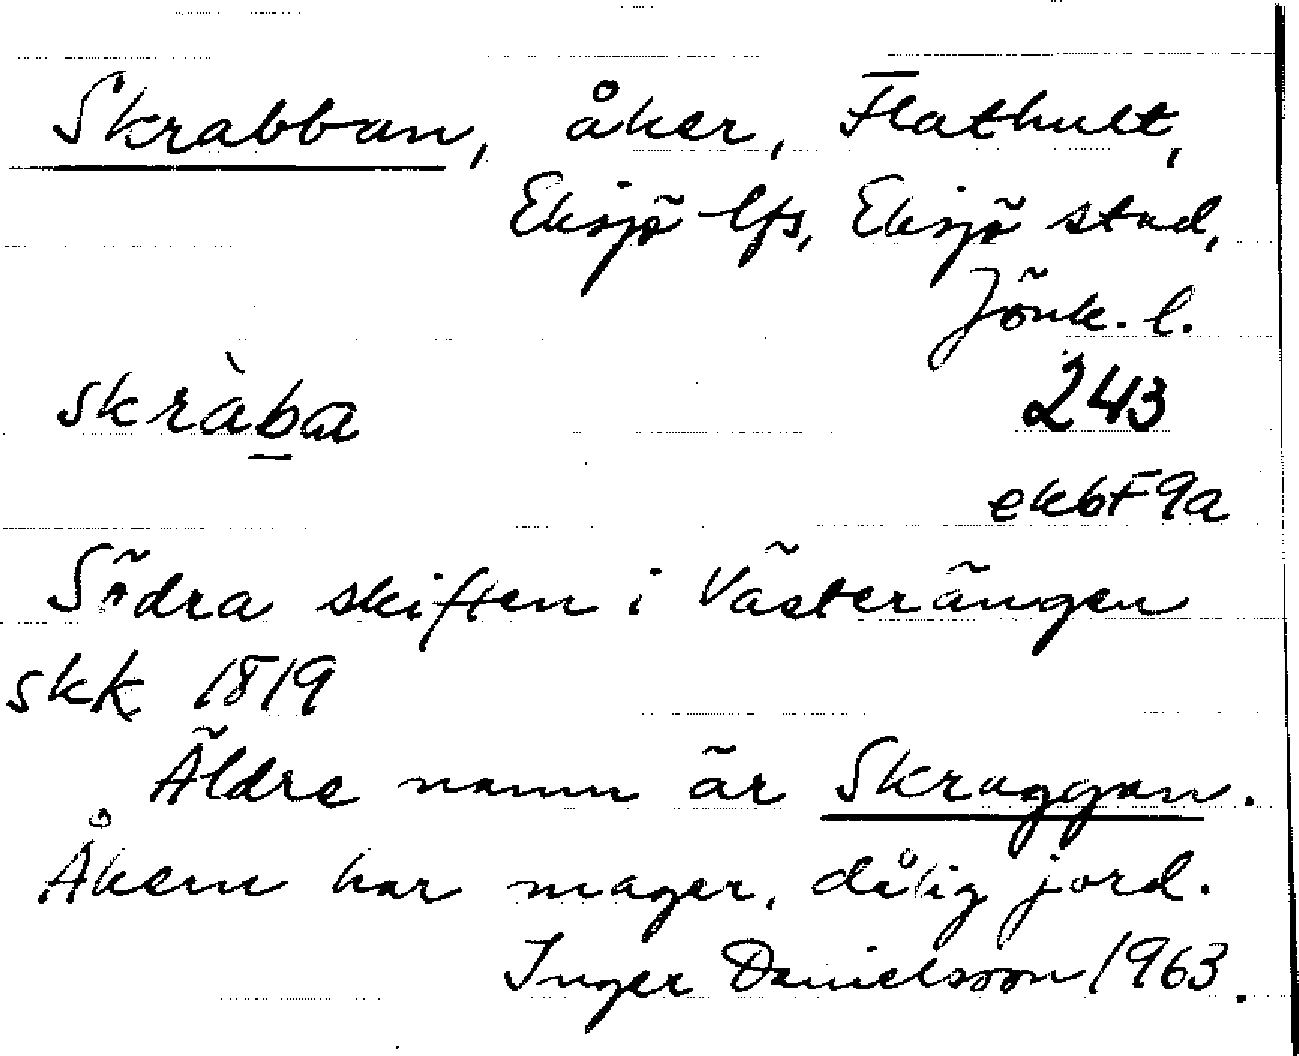 Skrabban, åker, Flathult,
Eksjö lfs, Eksjö stad,
Jönk. l.
skràb̲a 243
ekbF9a
Södra skiften i Västerängen
skk 1819
Äldre namn är Skraggan.
Åkern har mager, dålig jord.
Inger Danielsson 1963.